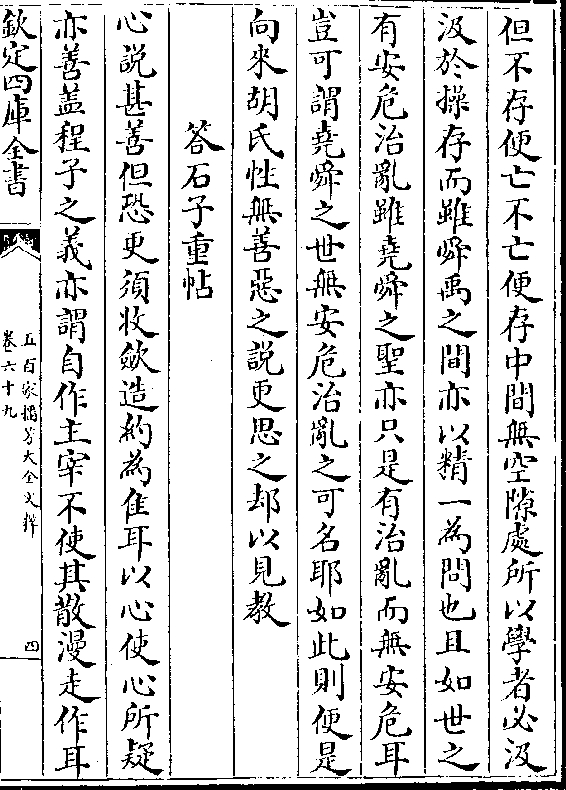 但不存便亡不亡便存中間無空隙處所以學者必汲
汲於操存而雖舜禹之間亦以精一為問也且如世之
有安危治亂雖堯舜之聖亦只是有治亂而無安危耳
豈可謂堯舜之世無安危治亂之可名耶如此則便是
向來胡氏性無善惡之說更思之却以見教
答石子重帖
心說甚善但恐更須收斂造約為隹耳以心使心所疑
亦善盖程子之義亦謂自作主宰不使其散漫走作耳
欽定四庫全書
五百家播芳大全文粹
卷六十九
四